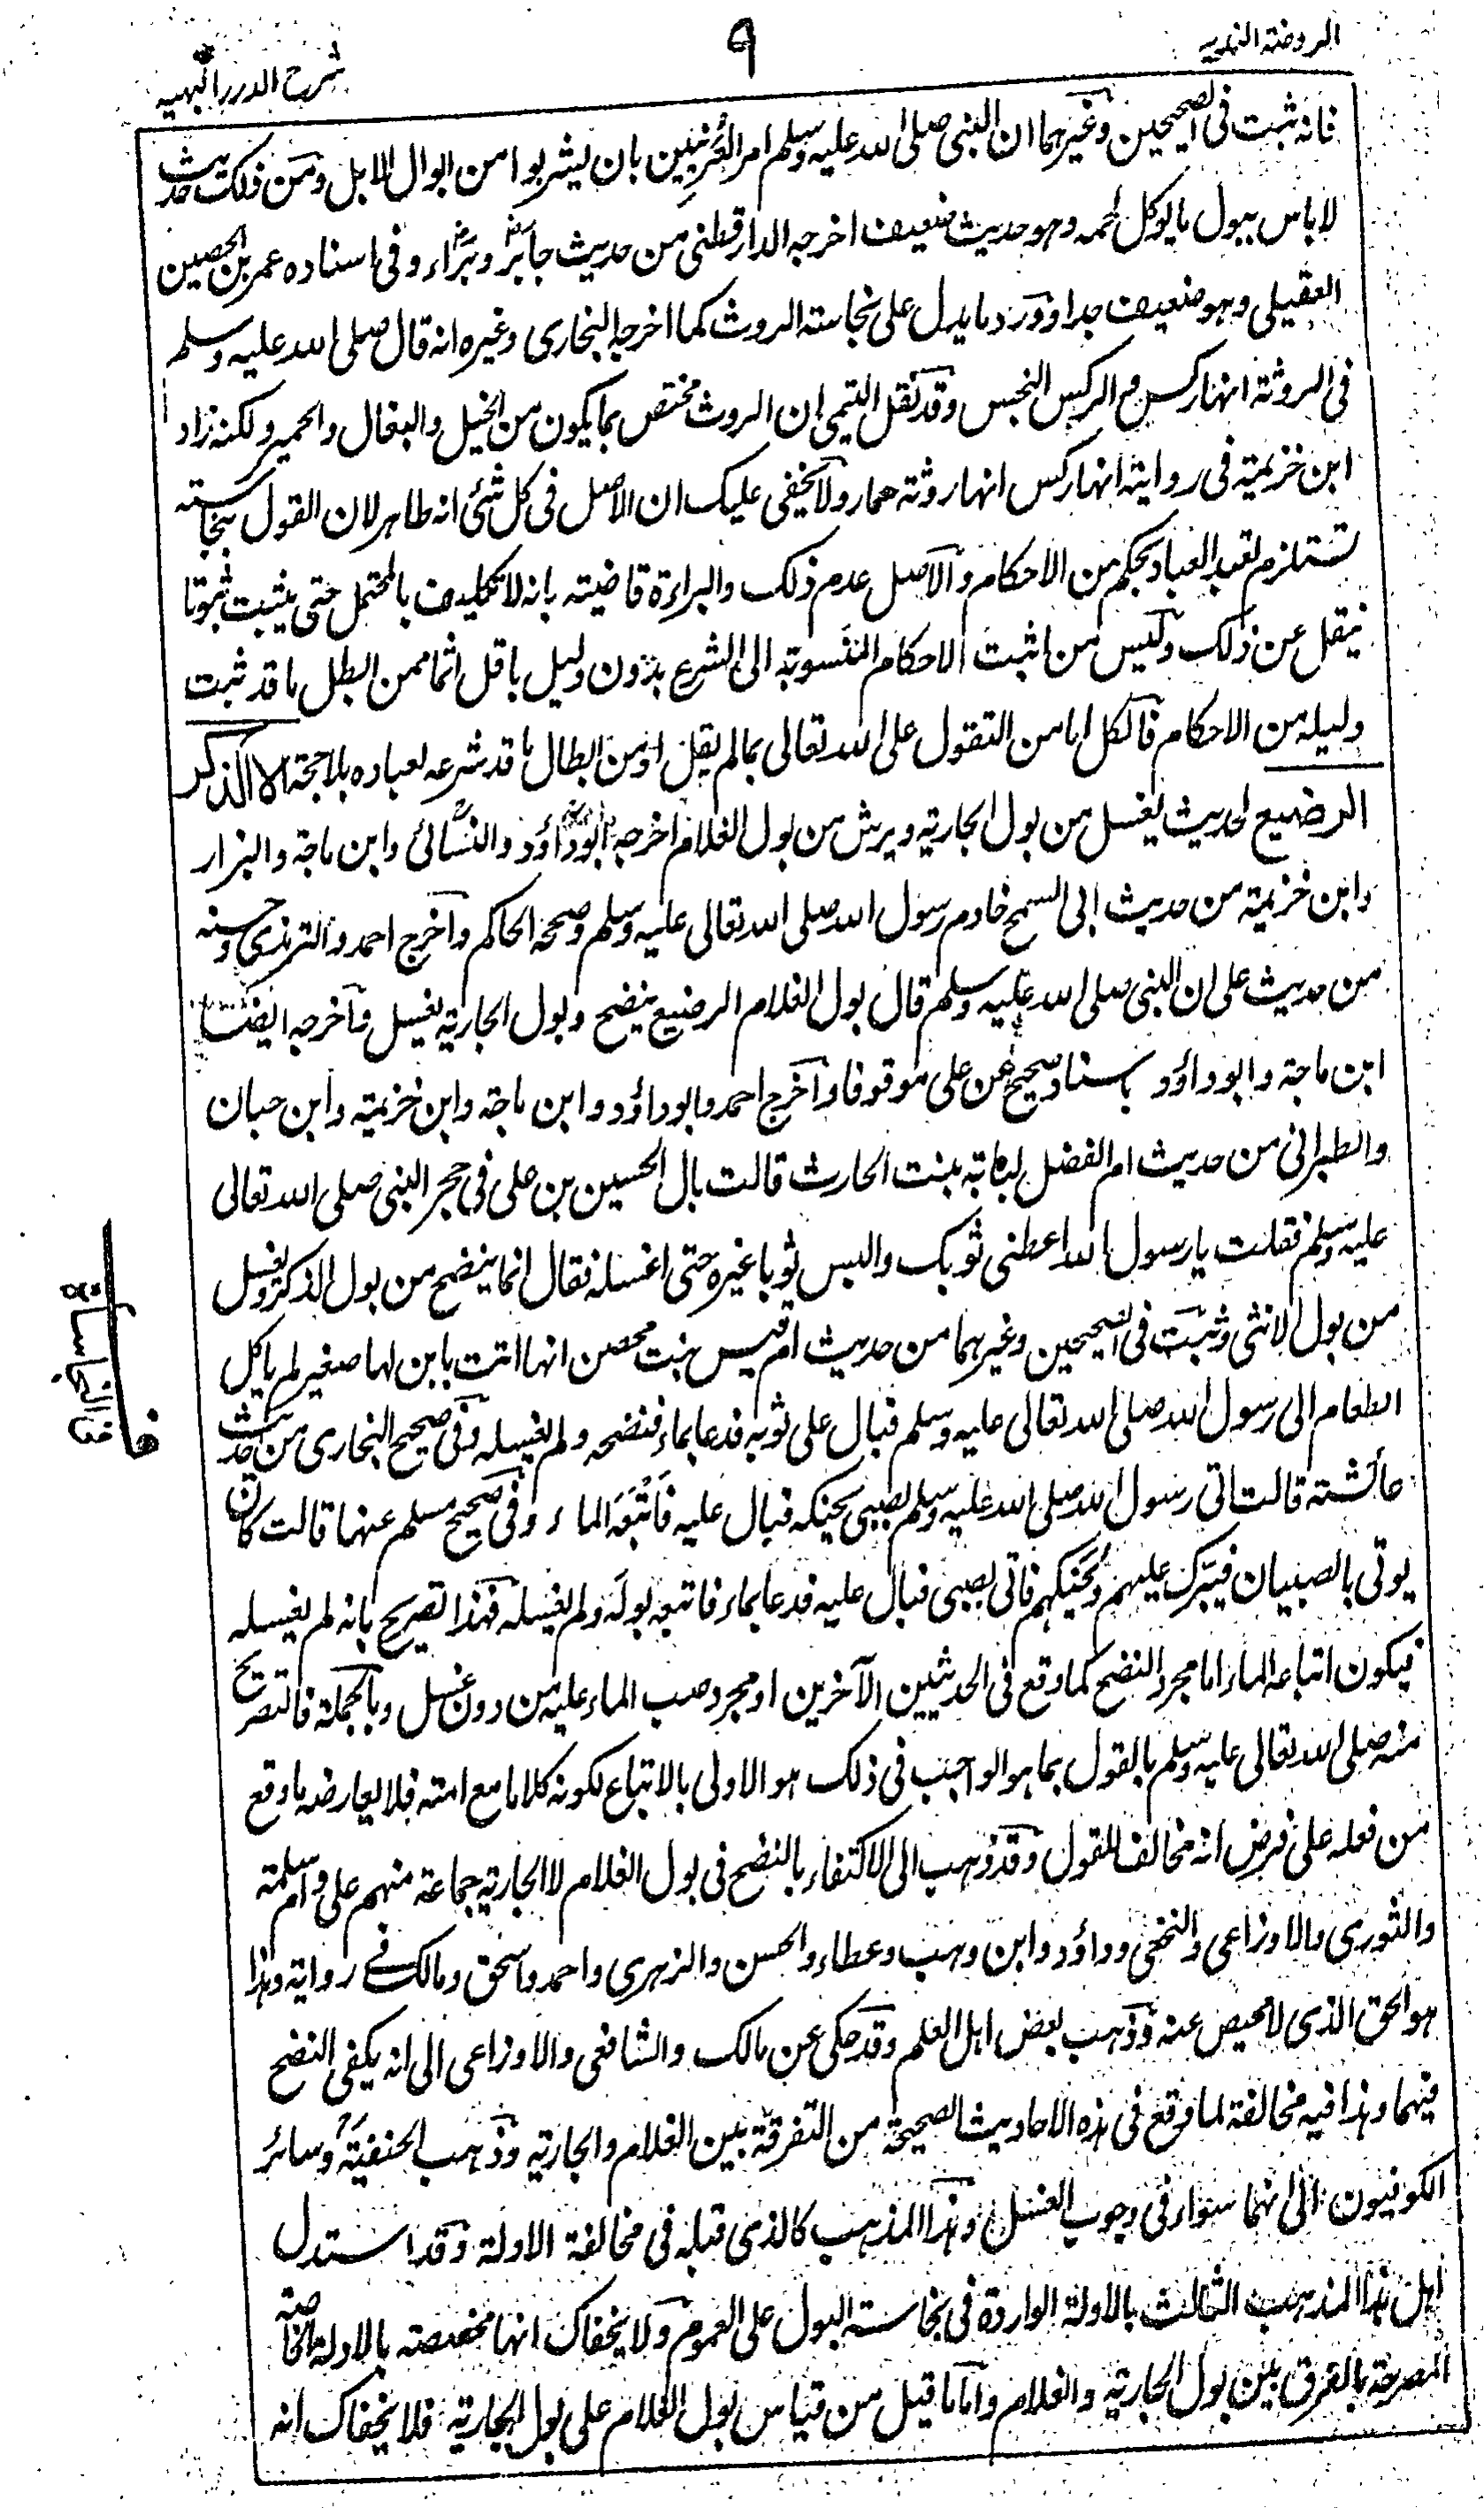 الروضة الندية
٩
شرح الدرر البهية
فانه ثبت فى الصحيحين وغيرهما ان النبى صلى الله عليه وسلم امر العُرَنِيين بان يشربوا من ابوال الابل ومن ذلك حديث
لا باس ببول ما يوكل لحمه وهو حديث ضعيف اخرجه الدارقطنى من حديث جابر وبراء وفى اسناده عمر بن الحصين
العقيلى وهو ضعيف جدا وورد ما يدل على نجاسة الروث كما اخرجه البخارى وغيره انه قال صلى الله عليه وسلم
فى الروثة انها ركس والركس النجس وقد نقل التيمى ان الروث مختص بما يكون من الخيل والبغال والحمير ولكنه زاد
ابن خزيمة فى رواية انها ركس انها روثة حمار ولا يخفى عليك ان الاصل فى كل شئ انه طاهر لان القول بنجاسته
تستلزم تعبد العباد بحكم من الاحكام والاصل عدم ذلك والبراءة قاضية بانه لا تكليف بالمحتمل حتى يثبت ثبوتا
ينقل عن ذلك وليس من اثبت الاحكام المنسوبة الى الشرع بدون دليل باقل اثما ممن ابطل ما قد ثبت
دليله من الاحكام فالكل اما من التقول على الله تعالى بما لم يقل او من ابطال ما قد شرعه لعباده بلا حجة الا الذكر
الرضيع لحديث يغسل من بول الجارية ويرش من بول الغلام اخرجه ابو داؤد والنسائى وابن ماجة والبزار
وابن خزيمة من حديث ابى السمح خادم رسول الله صلى الله تعالى عليه وسلم وصححه الحاكم واخرج احمد والترمذى وحسنه
من حديث على ان النبى صلى الله عليه وسلم قال بول الغلام الرضيع ينضح وبول الجارية يغسل واخرجه ايضا
ابن ماجة وابو داؤد باسناد صحيح عن على موقوفا واخرج احمد وابو داؤد وابن ماجة وابن خزيمة وابن حبان
والطبرانى من حديث ام الفضل لبابة بنت الحارث قالت بال الحسين بن على فى حجر النبى صلى الله تعالى
عليه وسلم فقلت يا رسول الله اعطنى ثوبك والبس ثوبا غيره حتى اغسله فقال انما ينضح من بول الذكر ويغسل
من بول الانثى وثبت فى الصحيحين وغيرهما من حديث ام قيس بنت محصن انها اتت بابن لها صغير لم ياكل
الطعام الى رسول الله صلى الله تعالى عليه وسلم فبال على ثوبه فدعا بماء فنضحه ولم يغسله وفى صحيح البخارى من حديث
عائشة قالت اتى رسول الله صلى الله عليه وسلم بصبى يحنكه فبال عليه فَاَتْبَعَه الماء وفى صحيح مسلم عنها قالت كان
يوتى بالصبيان فيبرّك عليهم ويُحنّكهم فاتى بصبى فبال عليه فدعا بماء فاتبعه بولَه ولم يغسله فهذا تصريح بانه لم يغسله
فيكون اتباعه الماء اما مجرد النضح كما وقع فى الحديثين الآخرين او مجرد صب الماء عليه من دون غسل وبالجملة فالتصريح
منه صلى الله تعالى عليه وسلم بالقول بما هو الواجب فى ذلك هو الاولى بالاتباع لكونه كلاما مع امته فلا يعارضه ما وقع
من فعله على فرض انه مخالف للقول وقد ذهب الى الاكتفاء بالنضح فى بول الغلام لا الجارية جماعة منهم على وام سلمة
والثورى والاوزاعى والنخعى وداؤد وابن وهب وعطاء والحسن والزهرى واحمد واسحق ومالك فے رواية وهذا
هو الحق الذى لا محيص عنه وذهب بعض اهل العلم وقد حكى عن مالك والشافعى والاوزاعى الى انه يكفى النضح
فيهما وهذا فيه مخالفة لما وقع فى هذه الاحاديث الصحيحة من التفرقة بين الغلام والجارية وذهب الحنفية وسائر
الكوفيون الى انهما سواء فى وجوب الغسل وهذا المذهب كالذى قبله فى مخالفة الادلة وقد استدل
اهل هذا المذهب الثالث بالادلة الواردة فى نجاسة البول على العموم ولا يخفاك انها مخصصة بالادلة الخاصة
المصرحة بالفرق بين بول الجارية والغلام واما ما قيل من قياس بول الغلام على بول الجارية فلا يخفاك انه